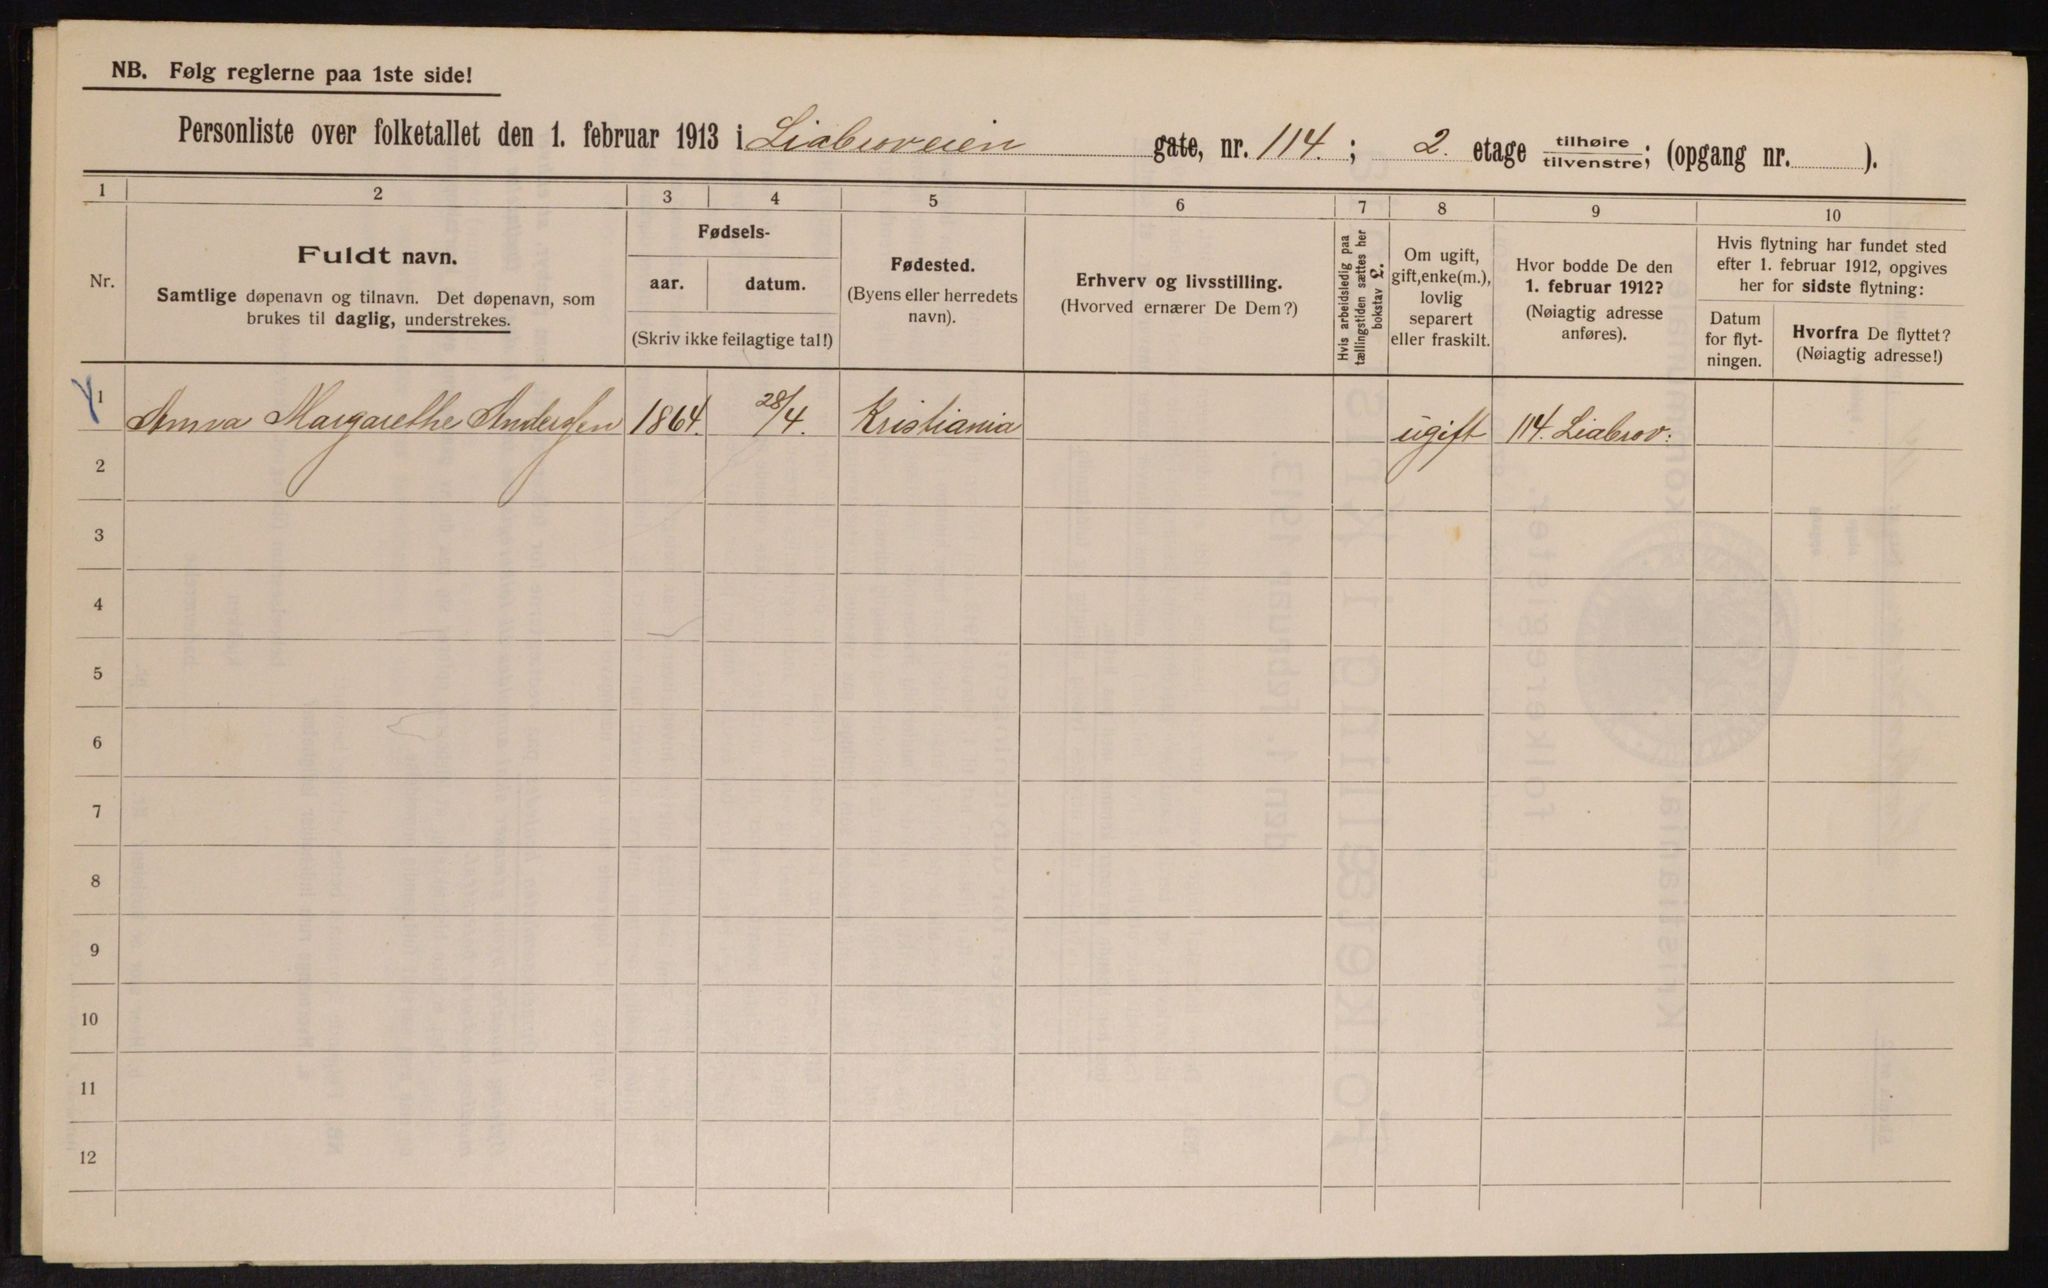 NB. Følg reglerne paa 1ste side!
Personliste over folketallet den 1. februar 1913 i Liabroveien gate, nr. 114. ; 2. etage tilhøire/tilvenstre; (opgang nr. ).
1 2 3 4 5 6 7 8 9 10
Nr.
Fuldt navn.
Samtlige døpenavn og tilnavn. Det døpenavn, som
brukes til daglig, understrekes.
Fødsels-
aar. datum.
(Skriv ikke feilagtige tal!)
Fødested.
(Byens eller herredets
navn).
Erhverv og livsstilling.
(Hvorved ernærer De Dem?)
Hvis arbeidsledig paa
tællingstiden sættes her
bokstav L.
Om ugift,
gift, enke(m.),
lovlig
separert
eller fraskilt.
Hvor bodde De den
1. februar 1912?
(Nøiagtig adresse
anføres).
Hvis flytning har fundet sted
efter 1. februar 1912, opgives
her for sidste flytning:
Datum
for flyt-
ningen.
Hvorfra De flyttet?
(Nøiagtig adresse!)
1 Anna Margarethe Andersen 1864. 28/4. Kristiania ugift 114. Liabrov:
2
3
4
5
6
7
8
9
10
11
12